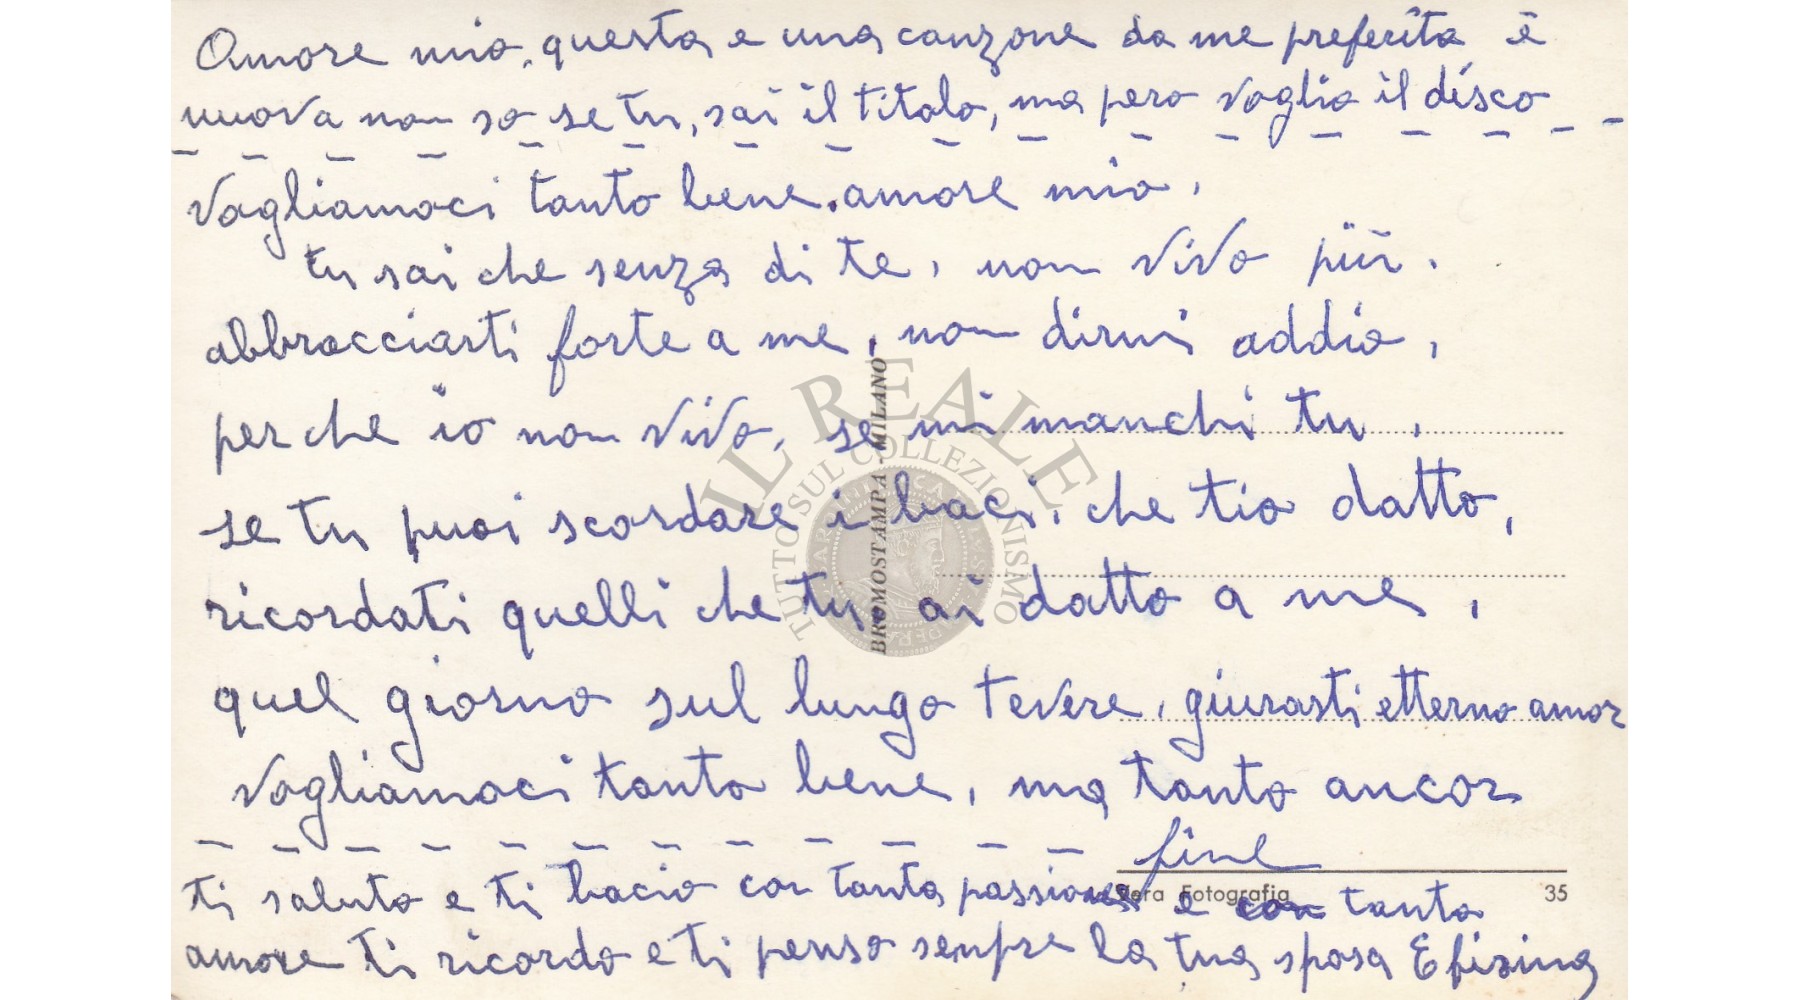 Amore mio, questa e una canzone da me preferita è
nuova non so se tu, sai il titolo, ma pero voglio il disco
Vogliamoci tanto bene, amore mio,
tu sai che senza di te, non vivo più.
abbracciarti forte a me, non dirmi addio,
perche io non vivo, se mi manchi tu,
se tu puoi scordare i baci, che tio datto,
ricordati quelli che tu, ai datto a me,
quel giorno sul lungo tevere, giurasti etterno amor
Vogliamoci tanto bene, ma tanto ancor
fine
ti saluto e ti bacio con tanta passione e con tanto
amore ti ricordo e ti penso senpre la tua sposa Efisina
BROMOSTAMPA - MILANO
Vera Fotografia 35
IL REALE
TUTTO SUL COLLEZIONISMO